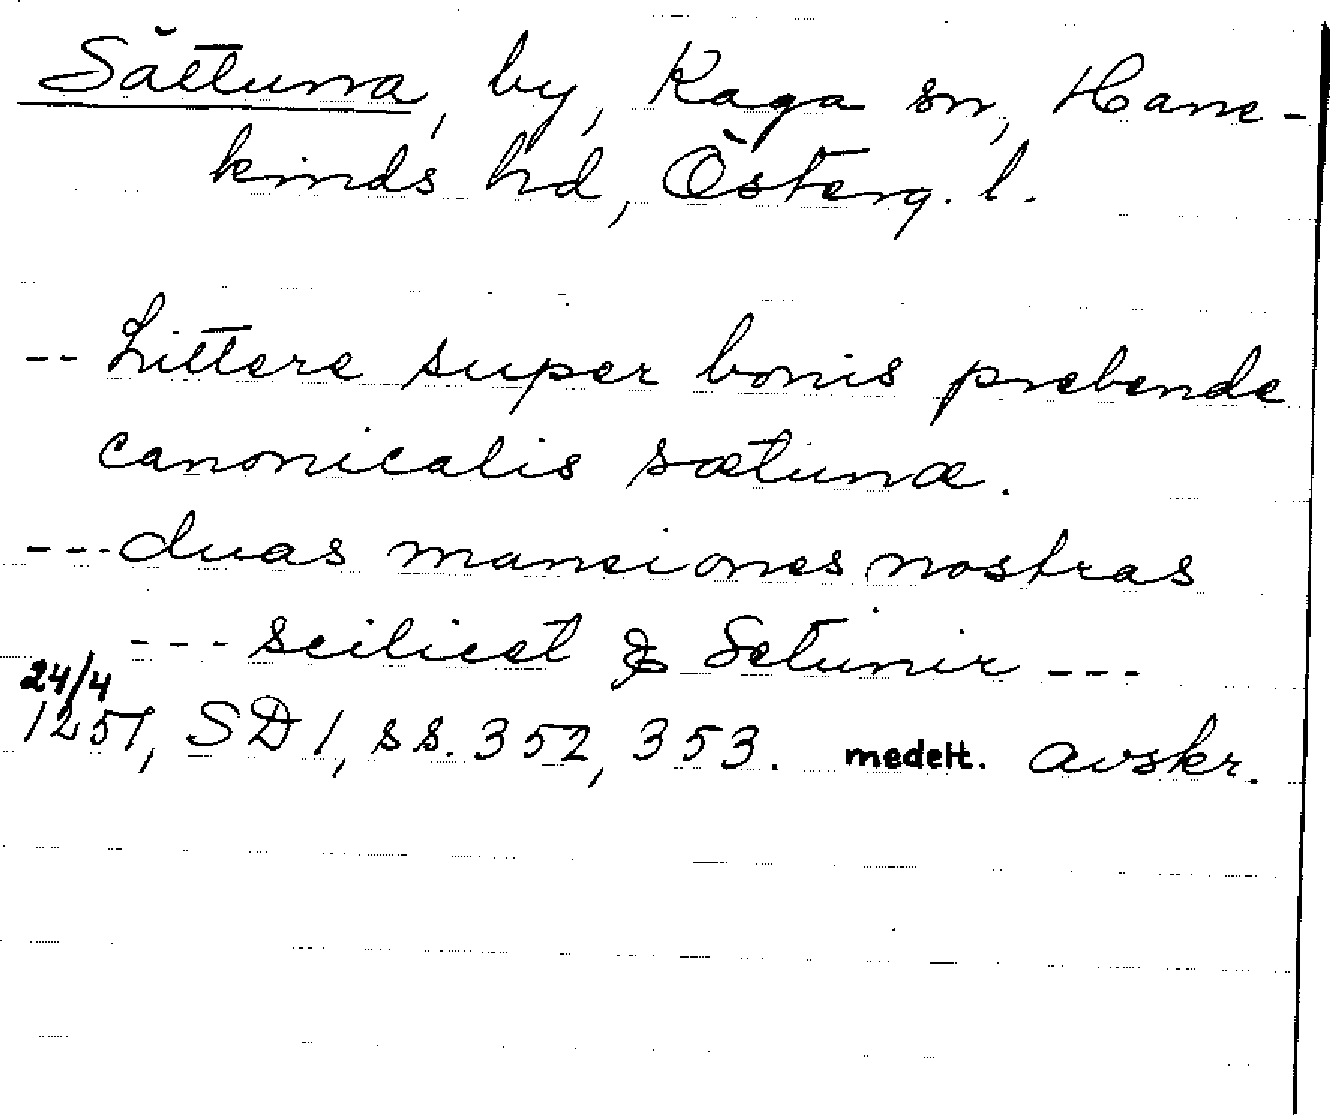 Sättuna, by, Kaga sn, Hane-
kinds hd, Österg. l.
-- Littere super bonis prebende
canonicalis sætunæ.
--- duas mansiones nostras
--- scilicet & Setunir ---
24/4
1251, SD 1, ss. 352, 353. medelt. avskr.